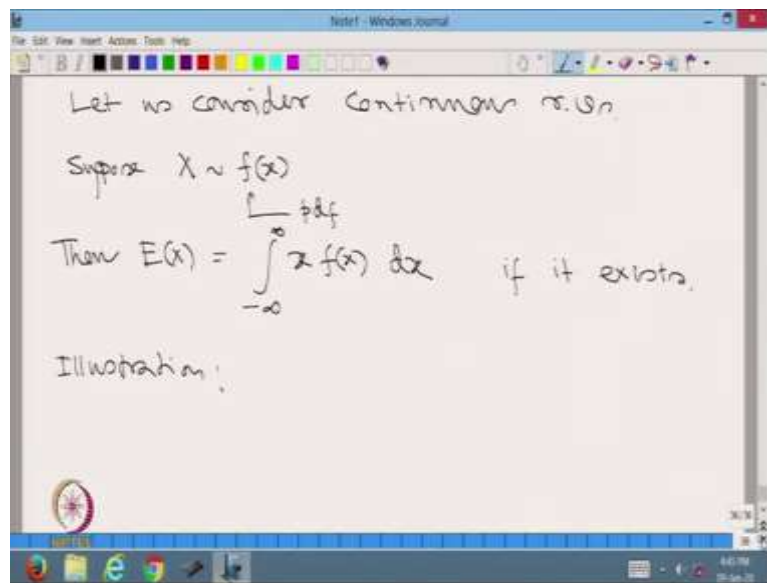 Note1 - Windows Journal
File Edit View Insert Actions Tools Help
Let us consider Continuous r.v.s.
Suppose X ~ f(x)
pdf
Then E(X) = ∫_{-∞}^{∞} x f(x) dx if it exists.
Illustration:
NPTEL
36/36